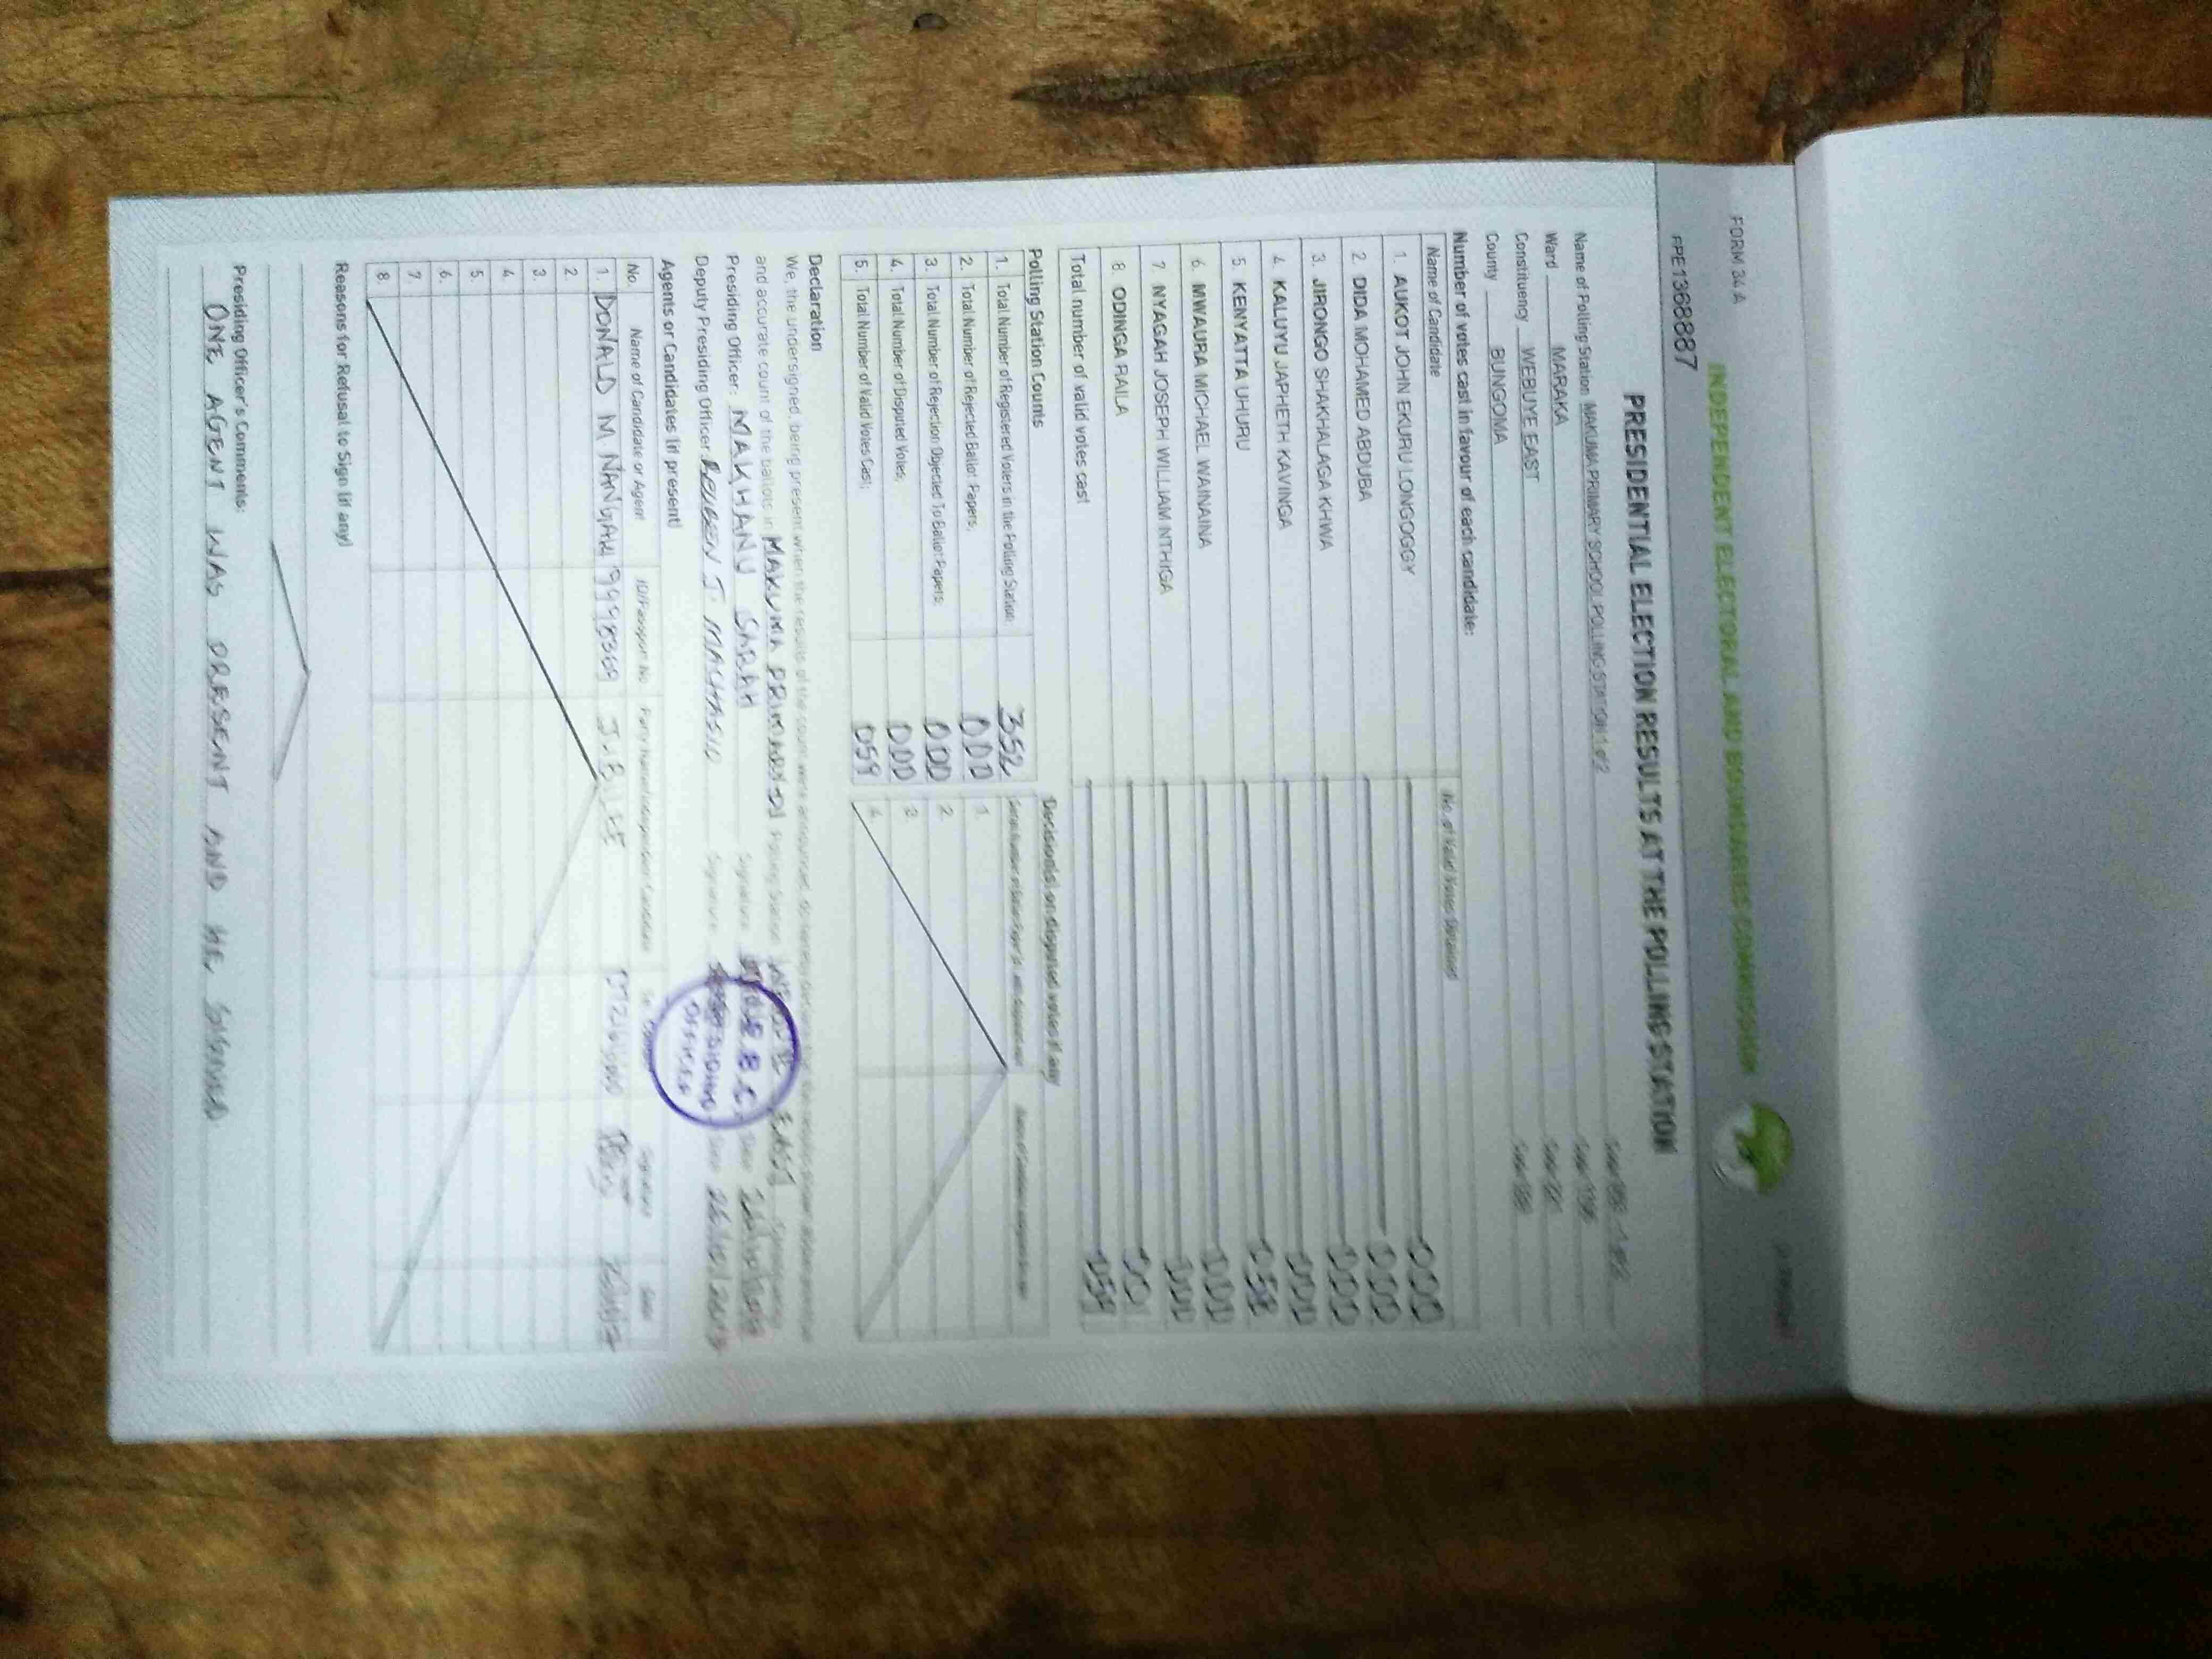 FORM 34 A
INDEPENDENT ELECTORAL AND BOUNDARIES COMMISSION
PPE1368887
PRESIDENTIAL ELECTION RESULTS AT THE POLLING STATION
Name of Polling Station MAKUMA PRIMARY SCHOOL POLLING STATION 1 of 2
Ward MARAKA
Constituency WEBUYE EAST
County BUNGOMA
Number of votes cast in favour of each candidate:
Name of Candidate No. of Valid Votes Obtained
1. AUKOT JOHN EKURU LONGOGGY 000
2. DIDA MOHAMED ABDUBA 000
3. JIRONGO SHAKHALAGA KHWA 000
4. KALUYU JAPHETH KAVINGA 000
5. KENYATTA UHURU 058
6. MWAURA MICHAEL WAINAINA 000
7. NYAGAH JOSEPH WILLIAM NTHIGA 000
8. ODINGA RAILA 001
Total number of valid votes cast 059
Polling Station Counts
1. Total Number of Registered Voters in the Polling Station 352
2. Total Number of Rejected Ballot Papers: 000
3. Total Number of Rejection Objected To Ballot Papers: 000
4. Total Number of Disputed Votes: 000
5. Total Number of Valid Votes Cast: 059
Decision(s) on disputed votes if any
1.
2.
3.
4.
Declaration
We, the undersigned, being present when the results of the count were announced, do hereby declare
and accurate count of the ballots in MAKUMA PRIMARY Polling Station WEBUYE EAST Constituency
Presiding Officer: MAKHANU SARAH Signature Date
Deputy Presiding Officer: REUBEN J. Signature Date 26/10/2017
I.E.B.C.
PRESIDING
OFFICER
Agents or Candidates (if present)
No. Name of Candidate or Agent ID/Passport No Party Name/Independent Candidate Signature Date
1. DONALD M 9998369 JUBILEE
2.
3.
4.
5.
6.
7.
8.
Reasons for Refusal to Sign (if any)
Presiding Officer's Comments:
ONE AGENT WAS PRESENT AND HE SIGNED